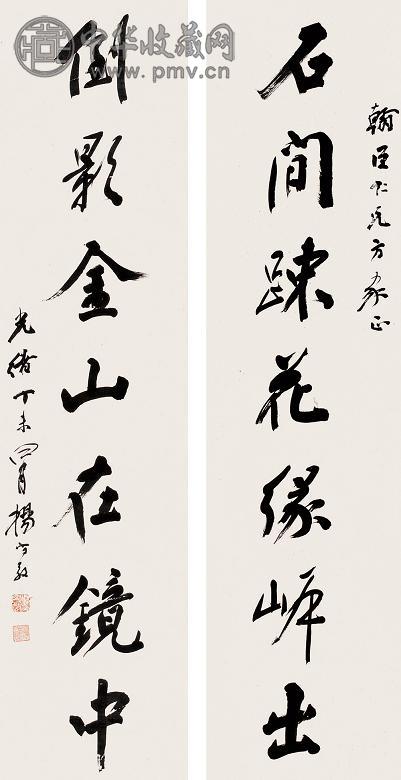 翰臣仁兄方家正
石間踈花緣岸出
倒影金山在鏡中
光緒丁未四月楊守敬
中华收藏网
www.pmv.cn